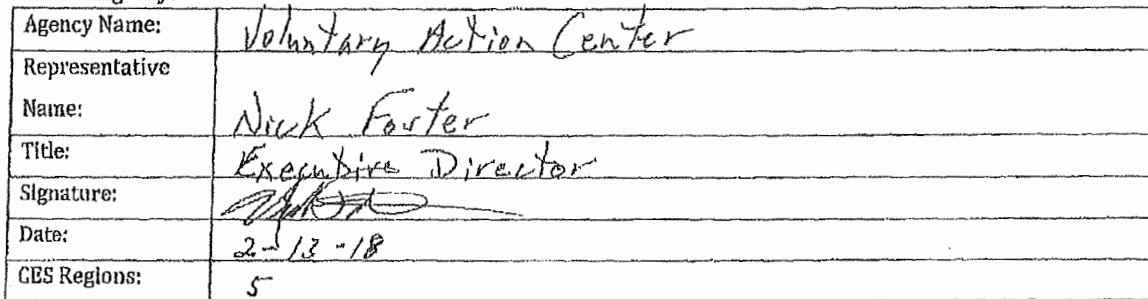 Agency Name: Voluntary Action Center
Representative
Name: Nick Foster
Title: Executive Director
Signature:
Date: 2-13-18
CES Regions: 5